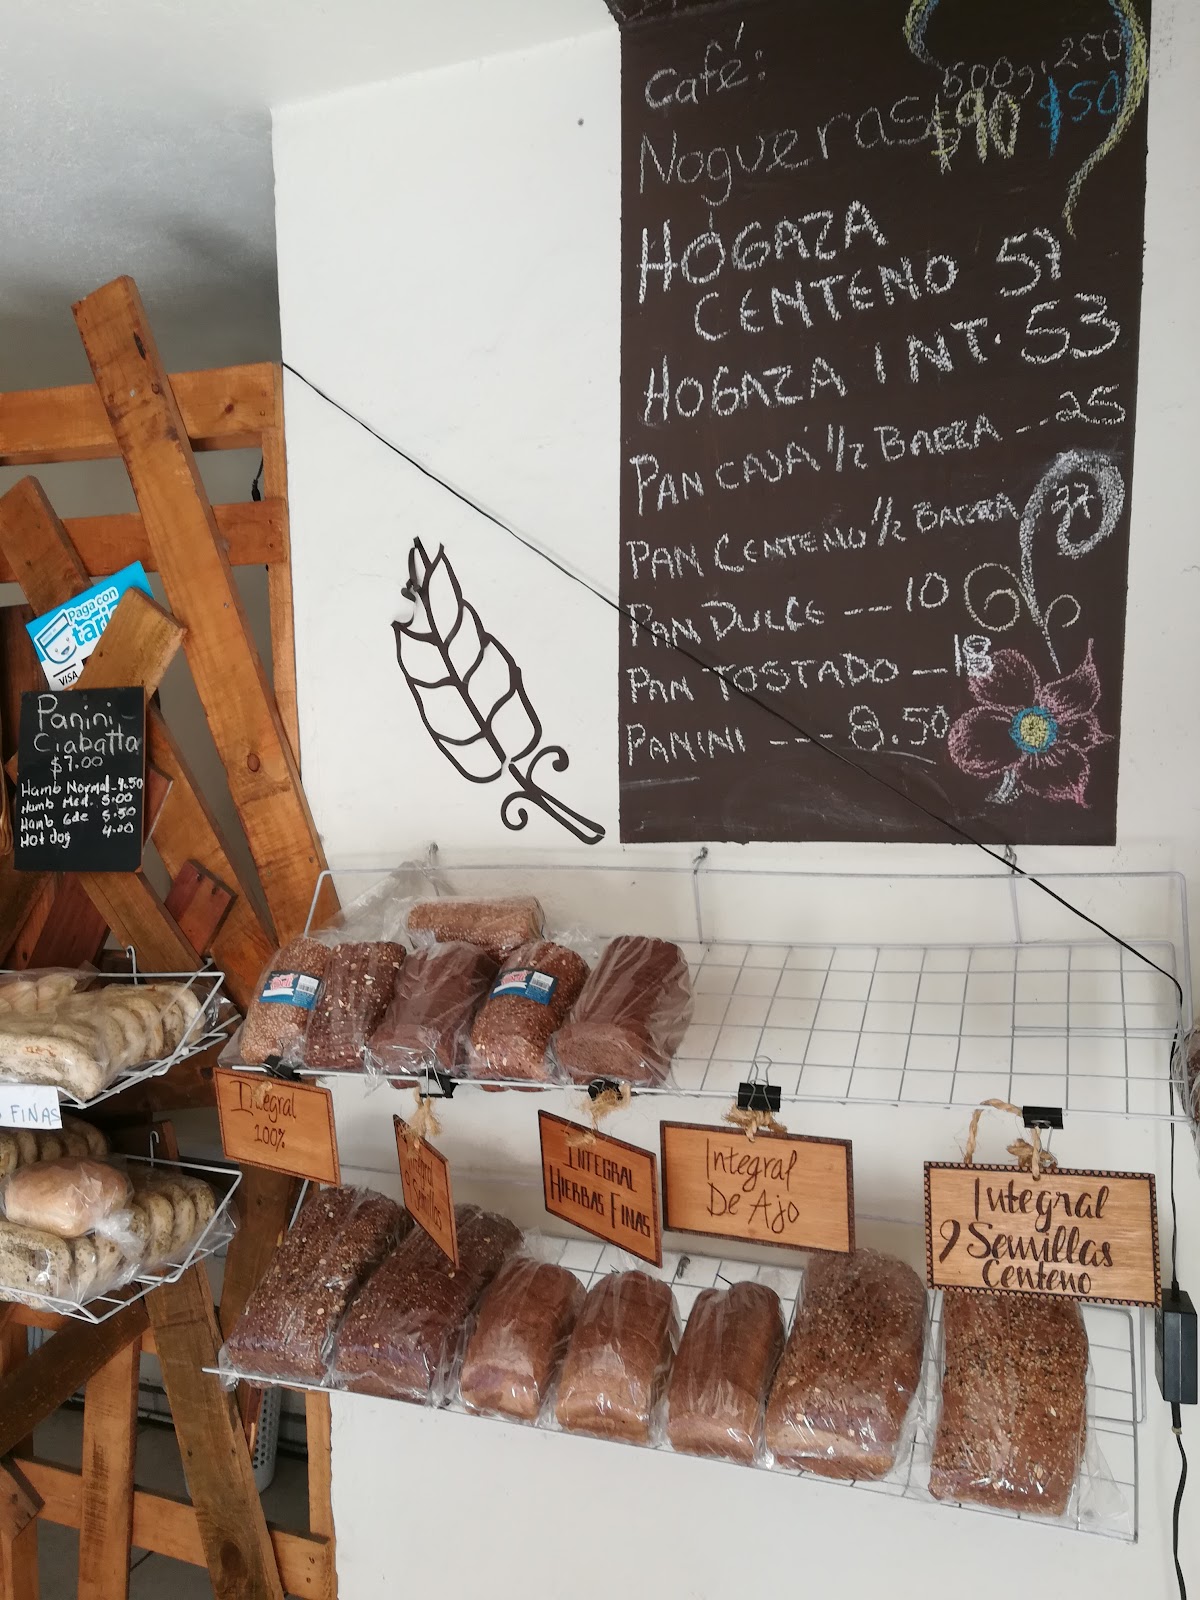 Café:
500g. 250
Nogueras $90 $50
HOGAZA
CENTENO 57
HOGAZA INT. 53
PAN CAJA 1/2 BARRA --25
PAN CENTENO 1/2 BARRA 27
PAN DULCE --- 10
PAN TOSTADO - 18
PANINI --- 8.50
Paga con
VISA
Panini
Ciabatta
$7.00
Hamb Normal - 4.50
Hamb Med. 5.00
Hamb Gde 5.50
Hot dog 4.00
FINAS
Integral
100%
Integral
INTEGRAL
HIERBAS FINAS
Integral
De Ajo
Integral
9 Semillas
Centeno